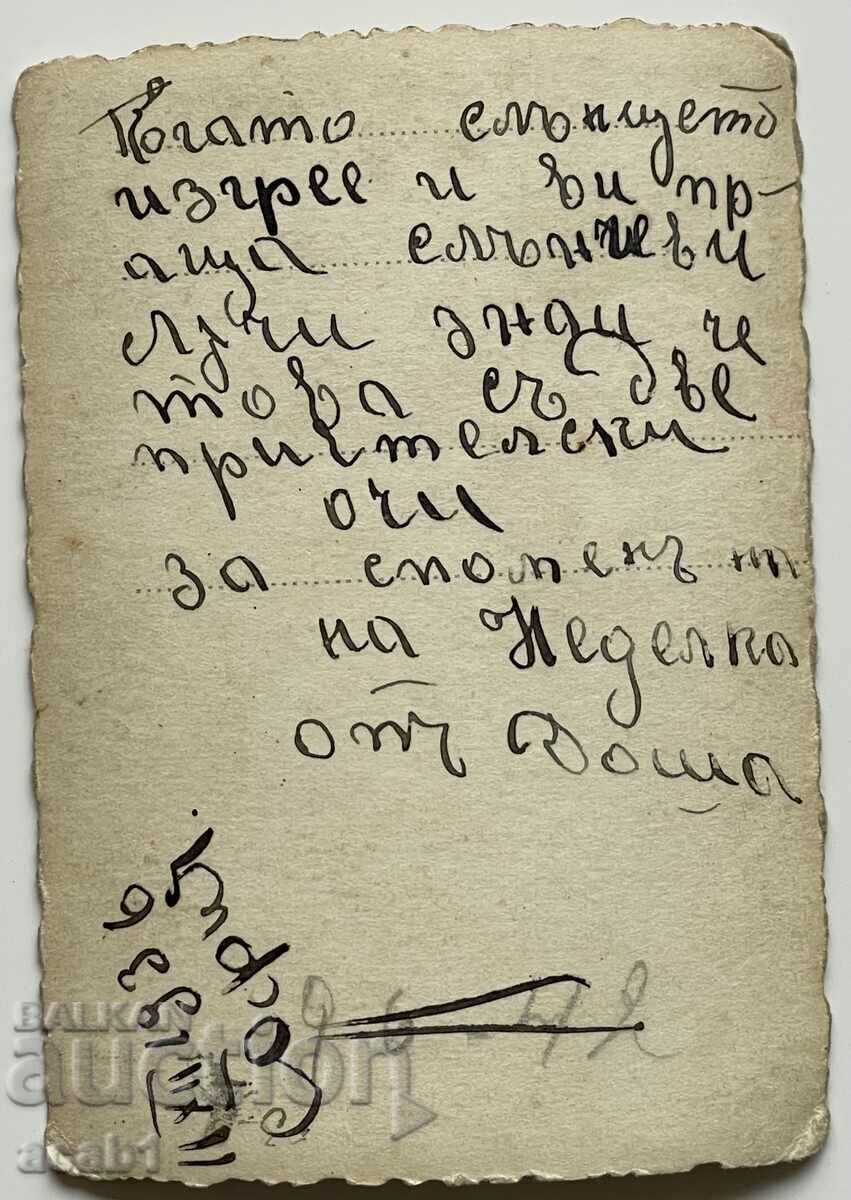 Когато слънцето
изгрее и ви пр-
аща слънчеви
лъчи знди че
това съ две
приятелски
очи
за споменъ
на Неделка
отъ Доша
София
1936
BALKAN
auction
acab1